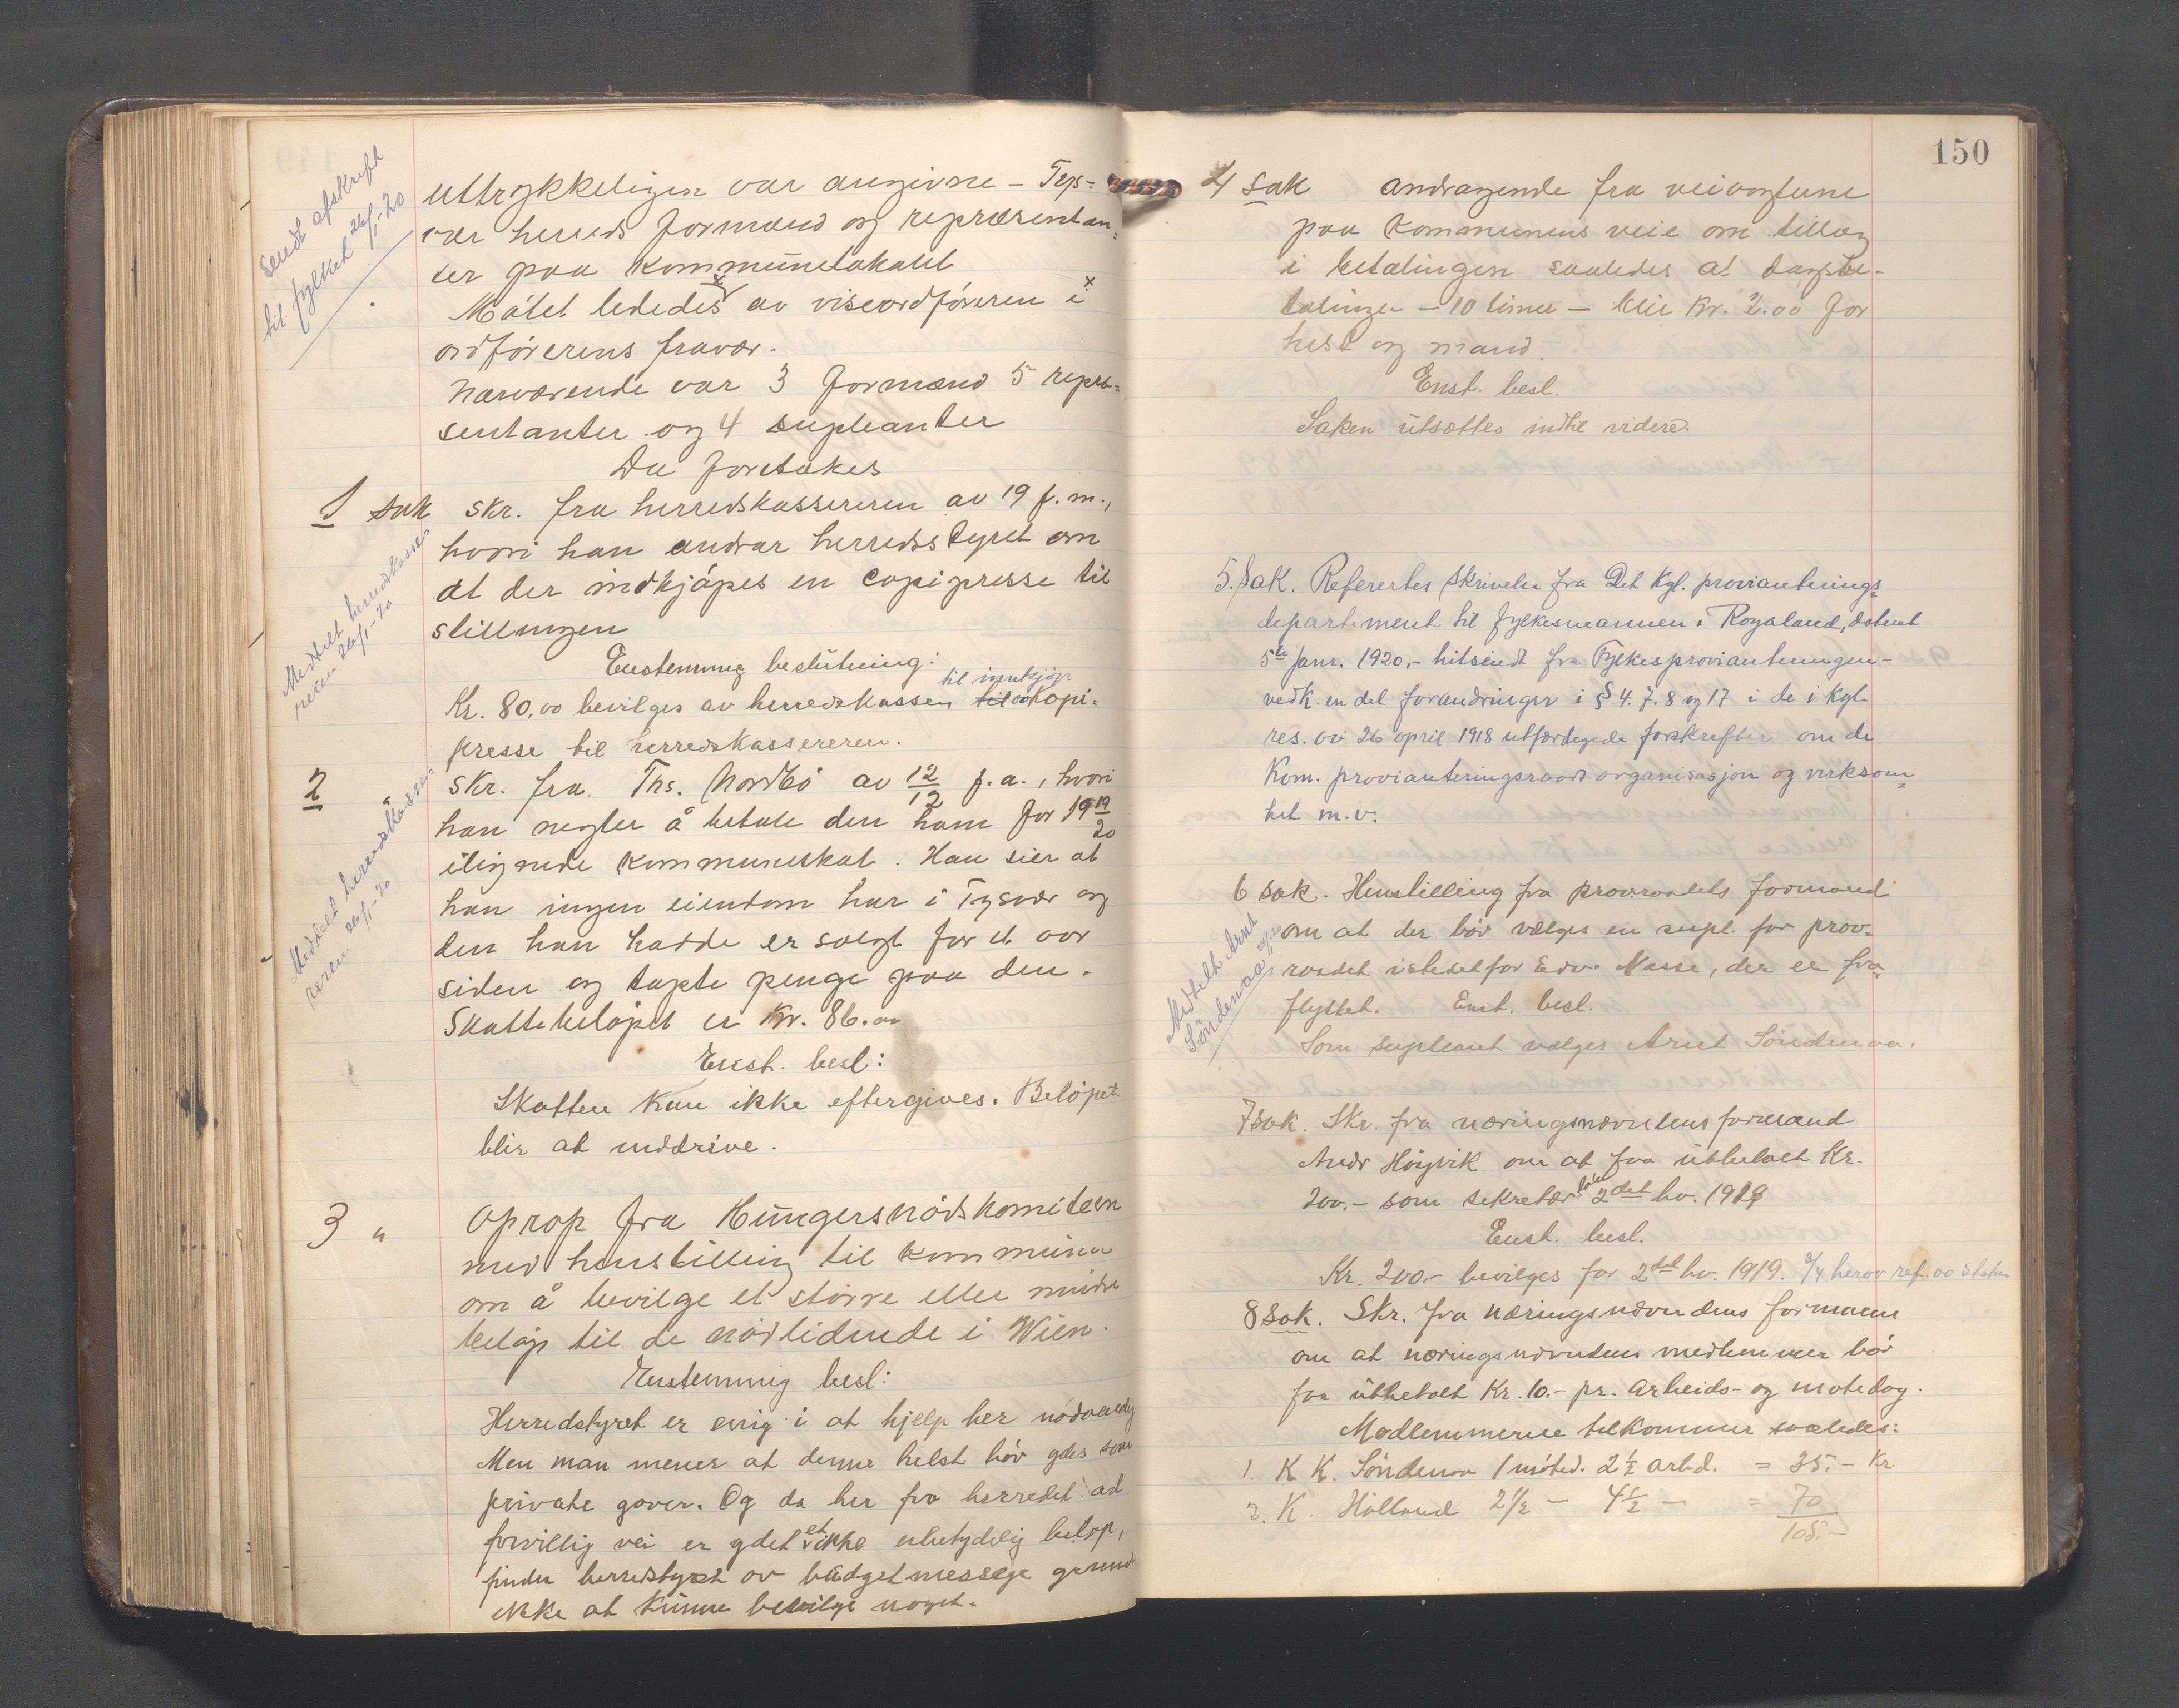 Sendt afskrift
til fylket 26/1-20
uttrykkeligen var angivne - Tys=
vær herreds formænd og repræsentan=
ter paa kommunelokalet
Møtet lededes av viseordføreren i
ordførerens fravær.
Nærværende var 3 formænd 5 repræ=
sentanter og 4 supleanter
Da foretokes
1 sak Skr. fra herredskassereren av 19 f.m.,
hvori han andrar herredsstyret om
at der indkjøpes en copipresse til
stillingen
Meddelt herredskasse
reren 26/1-20
Enstemmig beslutning:
til innkjøp
Kr. 80,00 bevilges av herredskassen til kopi=
presse til herredskassereren.
2 " Skr. fra Ths. Nordbø av 12/12 f.a., hvori
han negter å betale den ham for 1919/20
ilignede kommuneskat. Han sier at
han ingen eiendom har i Tysvær og
den han hadde er solgt for et aar
siden og tapte penge paa den.
Skattebeløpet er kr. 86.00
Meddelt herredskasse=
reren 26/1-20
Enst. besl:
Skatten kan ikke eftergives. Beløpet
blir at inddrive.
3 " Oprop fra Hungersnødskomiteen
med henstilling til kommunen
om å bevilge et større eller mindre
beløp til de nødlidende i Wien.
Enstemmig besl:
Herredstyret er enig i at hjelp her nødvendig
Men man mener at denne helst bør ydes som
private gaver. Og da her fra herredet ad
frivillig vei er ydet et ikke ubetydelig beløp,
finder herredstyret av budgetmessige grunde
ikke at kunne bevilge noget.
150
4 sak Andragende fra veivogterne
paa kommunens veie om tillæg
i betalingen saaledes at dagsbe-
talingen - 10 timer - blir kr. 2.00 for
hest og mand.
Enst. besl.
Saken utsættes indtil videre.
5. Sak. Referertes skrivelse fra Det Kgl. provianterings=
departement til fylkesmannen i Rogaland, datert
5te Janr. 1920,- hitsendt fra Fylkesprovianteringen-
vedk. en del forandringer i § 4. 7. 8 og 17 i de i Kgl.
res. av 26 april 1918 utfærdigede forskrefter om de
Kom. provianteringsraads organisasjon og virksom=
het m.v.
6 sak. Henstilling fra provraadets formand
om at der bør vælges en supl. for prov-
raadet istedetfor Edv. Nesse, der er fra=
flyttet. Enst. besl.
Som supleant vælges Arnt Søndenaa.
Meddelt Arnt
Søndenaa
7 sak. Skr. fra næringsnævndens formand
Andr Høgvik om at faa utbetalt Kr.
200.- som sekretær for 2det hv. 1919
Enst. besl.
Kr. 200.- bevilges for 2det hv. 1919. 3/4 herav ref. av staten
8 sak. Skr. fra Næringsnævndens formann
om at næringsnævndens medlemmer bør
faa utbetalt Kr. 10.- pr. arbeids- og møtedag.
Medlemmerne tilkommer saaledes:
1. K K. Søndenaa 1 møted. 2 1/2 arbd. = 35.- Kr
2. K. Hålland 2 1/2 - 4 1/2 - = 70
105.-